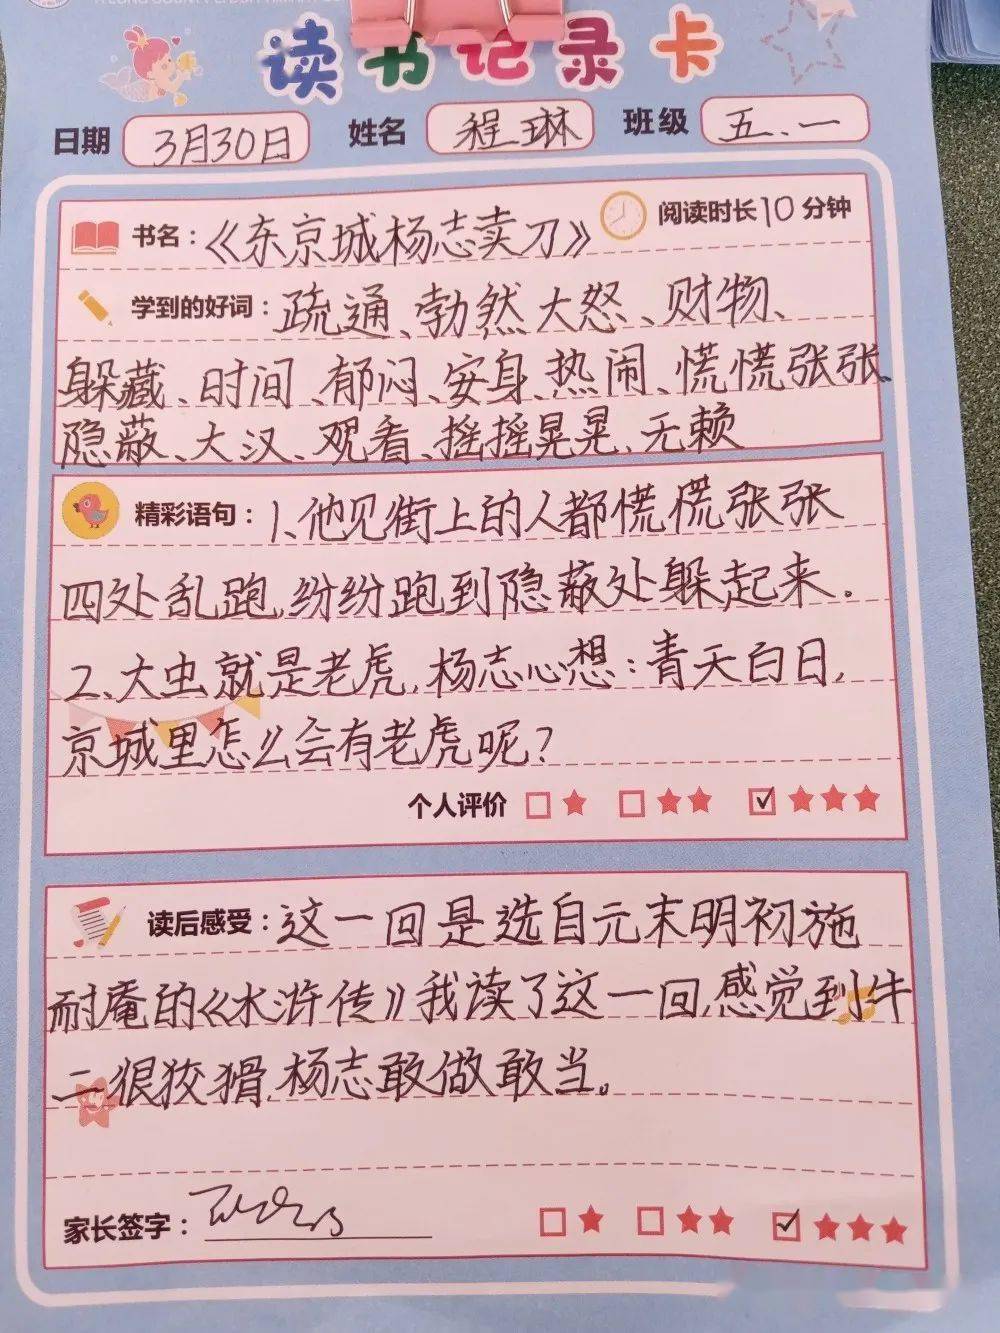 读书记录卡
日期 3月30日 姓名 程琳 班级 五、一
书名：《东京城杨志卖刀》 阅读时长10分钟
学到的好词：疏通、勃然大怒、财物、
躲藏、时间、郁闷、安身、热闹、慌慌张张、
隐蔽、大汉、观看、摇摇晃晃、无赖
精彩语句：1、他见街上的人都慌慌张张
四处乱跑，纷纷跑到隐蔽处躲起来。
2、大虫就是老虎，杨志心想：青天白日，
京城里怎么会有老虎呢？
个人评价
读后感受：这一回是选自元末明初施
耐庵的《水浒传》我读了这一回，感觉到牛
二很狡猾，杨志敢做敢当。
家长签字：